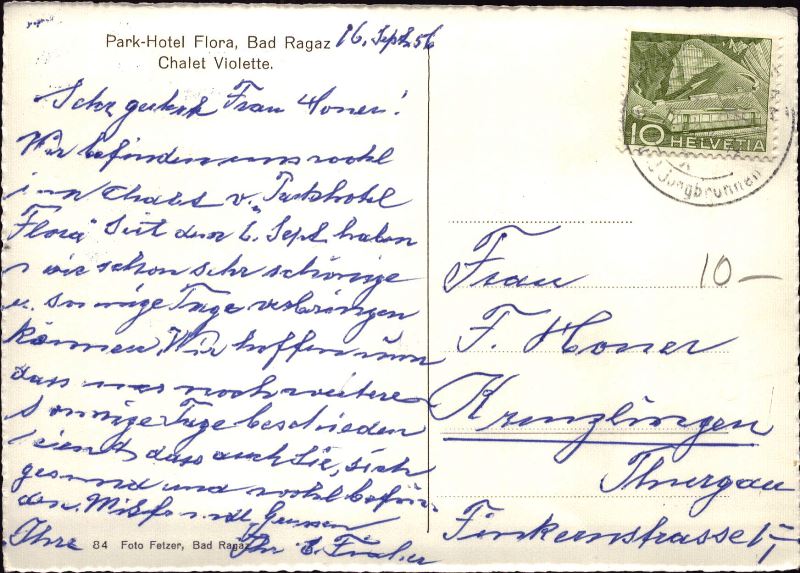 Park-Hotel Flora, Bad Ragaz
Chalet Violette.
16. Sept. 56
Sehr geehrte Frau Honer!
Wir befinden uns wohl
im Chalet v. „Parkhotel
Flora“ Seit dem 6. Sept. haben
wir schon sehr schönige
u. sonnige Tage verbringen
können. Wir hoffen nun
dass uns noch weitere
sonnige Tage beschieden
seien & dass auch Sie, sich
gesund und wohl befin-
den. Mit Grüssen
Ihre
84 Foto Fetzer, Bad Ragaz
10
HELVETIA
Jungbrunnen
10—
Frau
F. Honer
Kreuzlingen
Thurgau
Finkernstrasse